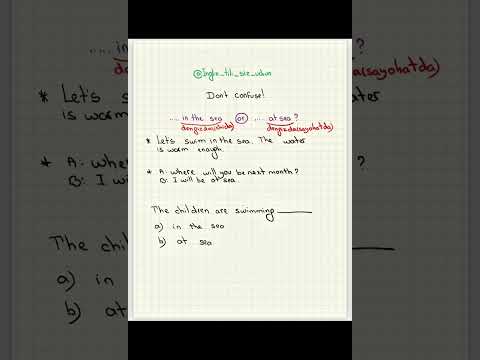 @Ingliz_tili_siz_uchun
Dont confuse!
..... in the sea or ..... at sea?
dengizda(sayohatda)
* Let's swim in the sea. The water
is warm enough.
* A: where will you be next month?
B: I will be at sea.
The children are swimming ______
a) in the sea
b) at sea